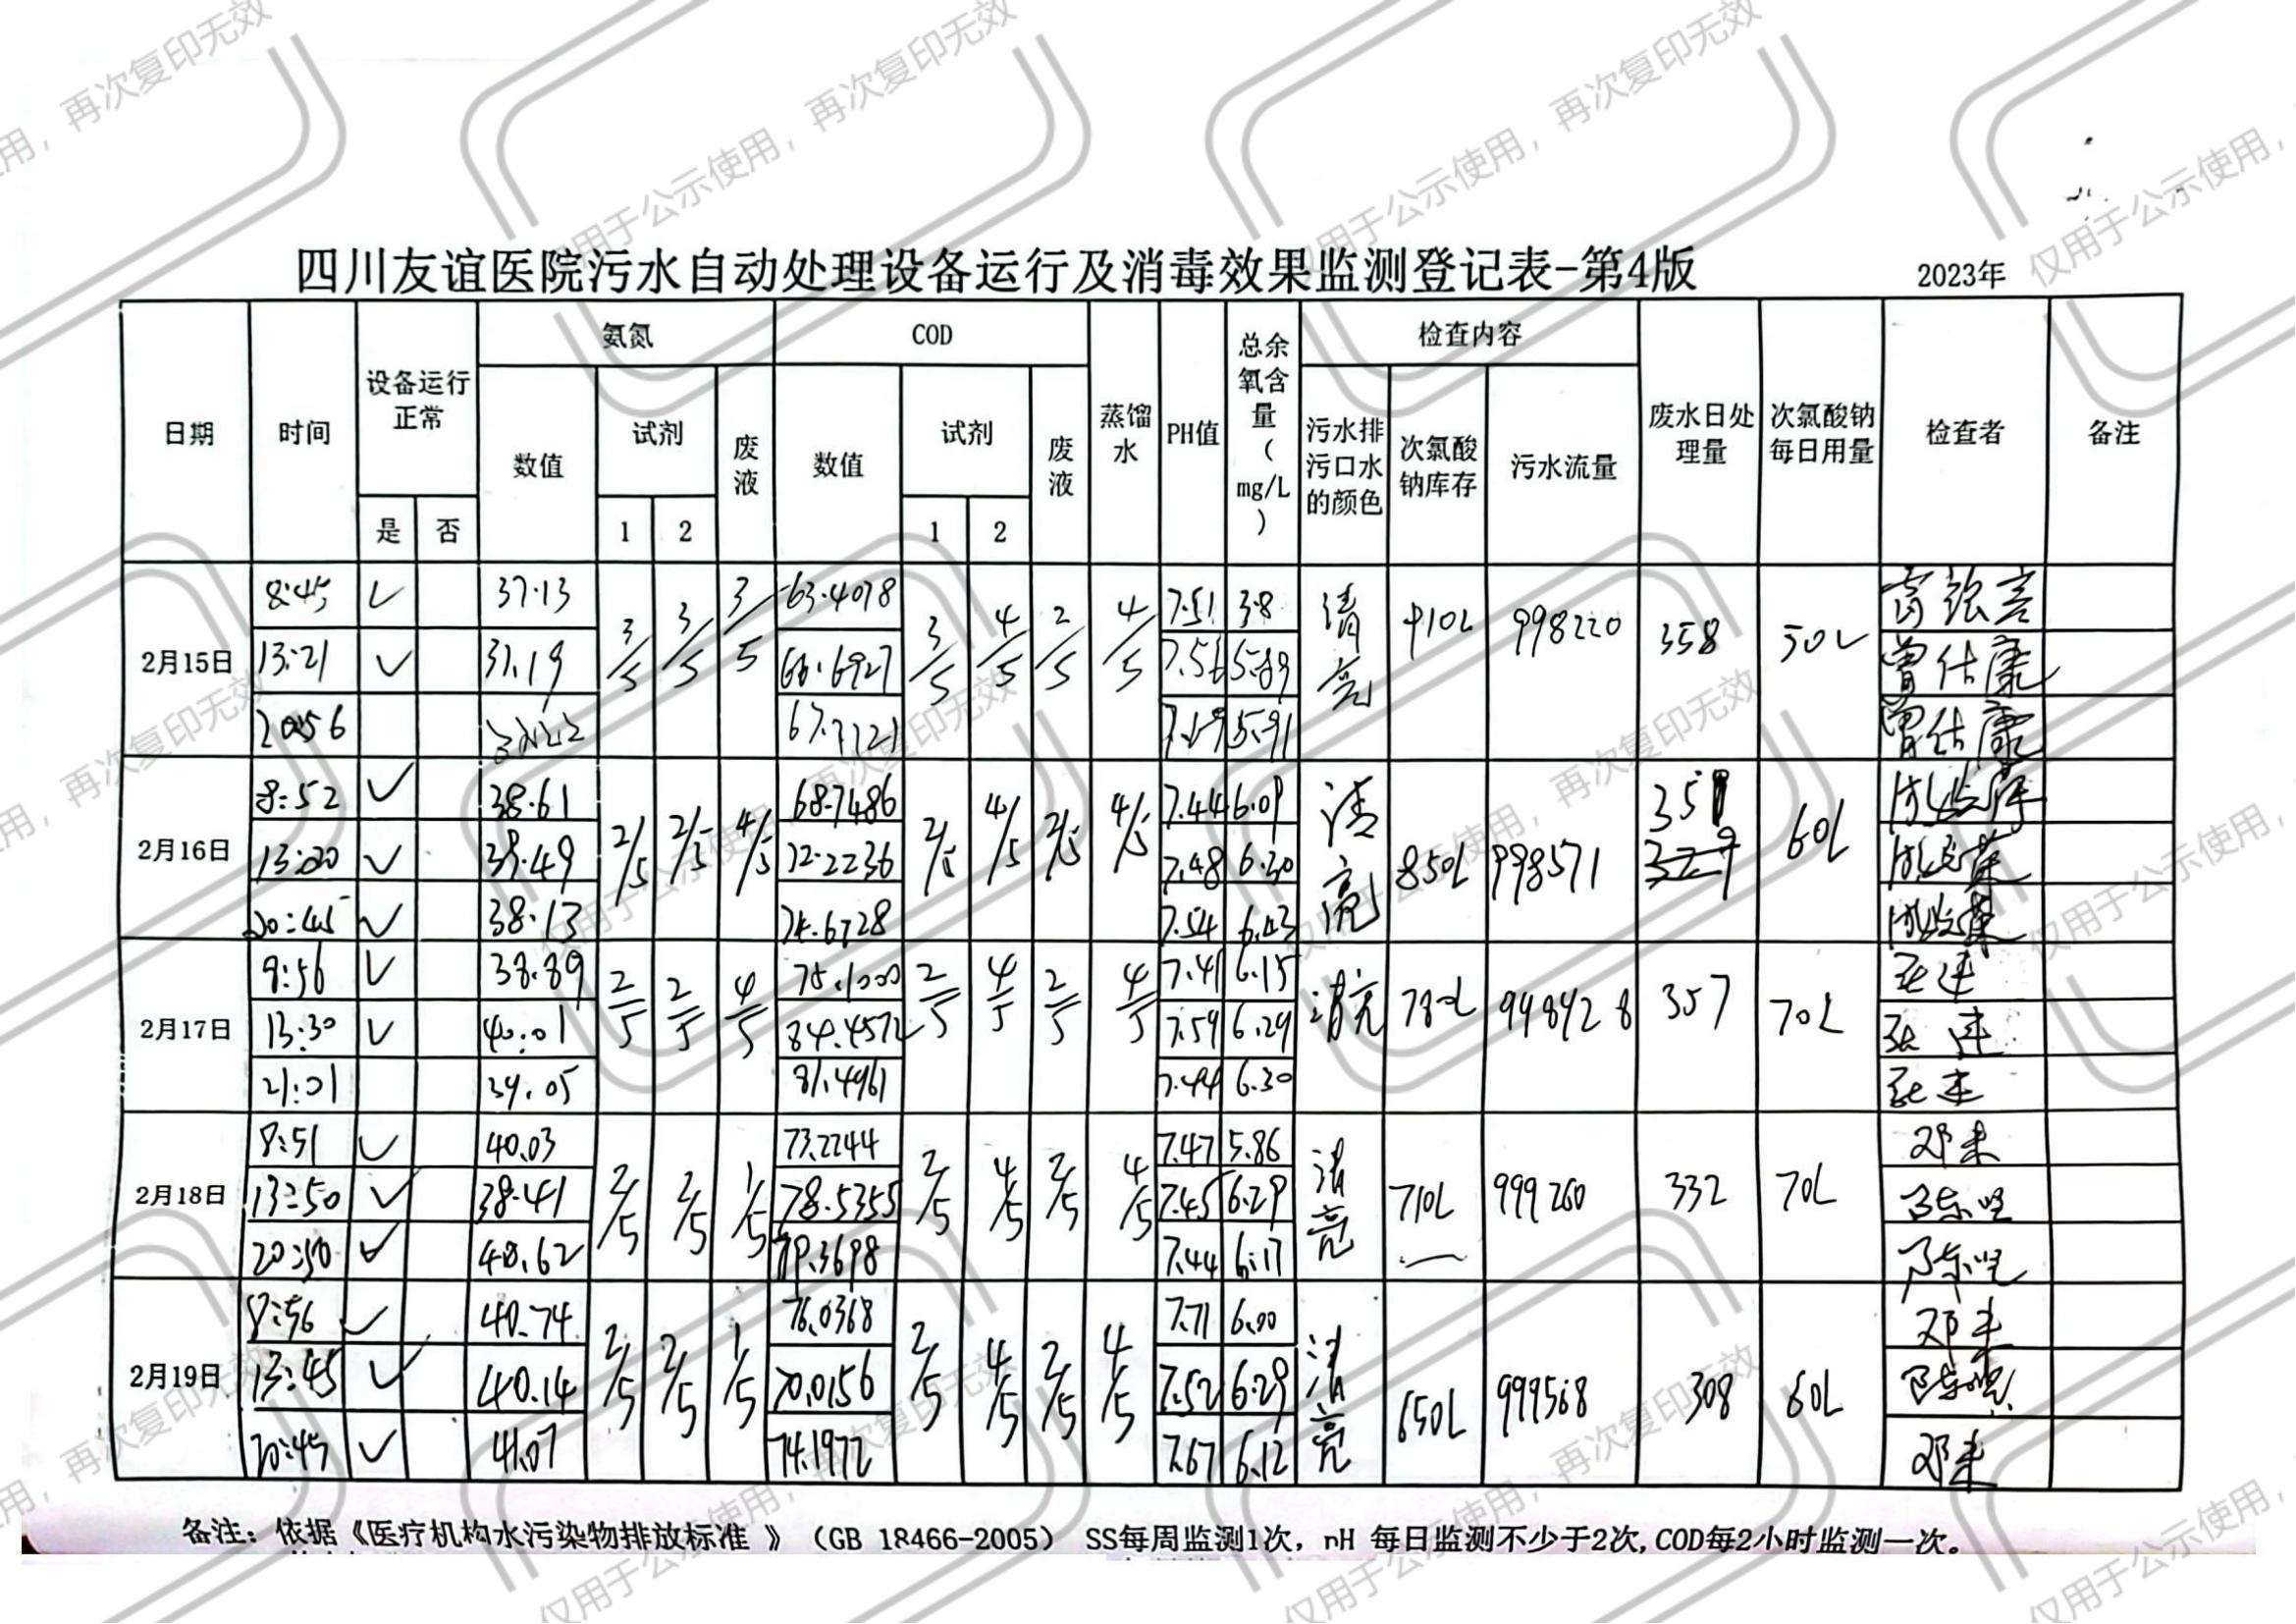 四川友谊医院污水自动处理设备运行及消毒效果监测登记表-第4版 2023年
日期 时间 设备运行正常 氨氮 COD 蒸馏水 PH值 总余氧含量(mg/L) 检查内容 废水日处理量 次氯酸钠每日用量 检查者 备注
是 否 数值 试剂 废液 数值 试剂 废液 污水排污口水的颜色 次氯酸钠库存 污水流量
1 2 1 2
2月15日 8:45 ✓ 37.13 3/5 3/5 3/5 63.4078 3/5 4/5 2/5 4/5 7.51 3.8 清亮 910L 998220 358 50L
13:21 ✓ 37.19 66.6927 7.56 5.89 曾仕康
20:56 67.7121 5.91 曾仕康
2月16日 8:52 ✓ 38.61 2/5 2/5 4/5 68.7486 2/5 4/5 2/5 4/5 7.44 6.09 清亮 850L 998571 351 60L
13:20 ✓ 38.49 72.2236 7.48 6.30
20:45 ✓ 38.13 74.6728 7.54 6.43
2月17日 8:56 ✓ 38.89 2/5 2/5 4/5 75.1000 2/5 4/5 2/5 4/5 7.41 6.15 清亮 780L 998928 357 70L
13:30 ✓ 40.01 84.4572 7.59 6.29
21:01 39.05 81.4961 7.44 6.30
2月18日 8:51 ✓ 40.03 2/5 2/5 1/5 73.2244 2/5 4/5 2/5 4/5 7.47 5.86 清亮 710L 999260 332 70L 邓未
13:50 ✓ 38.41 78.5355 7.45 6.29
20:50 ✓ 40.62 79.3698 7.44 6.17
2月19日 8:56 ✓ 40.74 2/5 2/5 1/5 76.0368 2/5 4/5 2/5 4/5 7.71 6.00 清亮 650L 999568 308 60L 邓未
13:45 ✓ 40.14 70.0156 7.52 6.29
20:45 ✓ 41.07 74.1972 7.67 6.12 邓未
备注：依据《医疗机构水污染物排放标准 》（GB 18466-2005） SS每周监测1次，pH 每日监测不少于2次,COD每2小时监测一次。
仅用于公示使用，再次复印无效